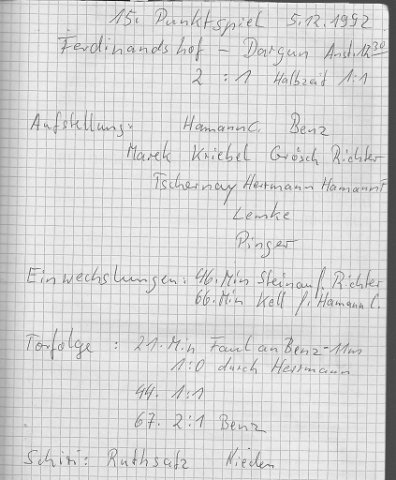 15. Punktspiel 5.12.1992
Ferdinandshof - Dargun Anst. 12 30
2 : 1 Halbzeit 1:1
Aufstellung: Hamann C. Benz
Marek Kriebel Grösch Richter
Tschernay Herrmann Hamann T
Lemke
Pinger
Einwechslungen: 46. Min Steinau f. Richter
66. Min Kell f. Hamann C.
Torfolge : 21. Min Faul an Benz - 11m
1:0 durch Herrmann
44. 1:1
67. 2:1 Benz
Schiri: Ruthsatz Nieden